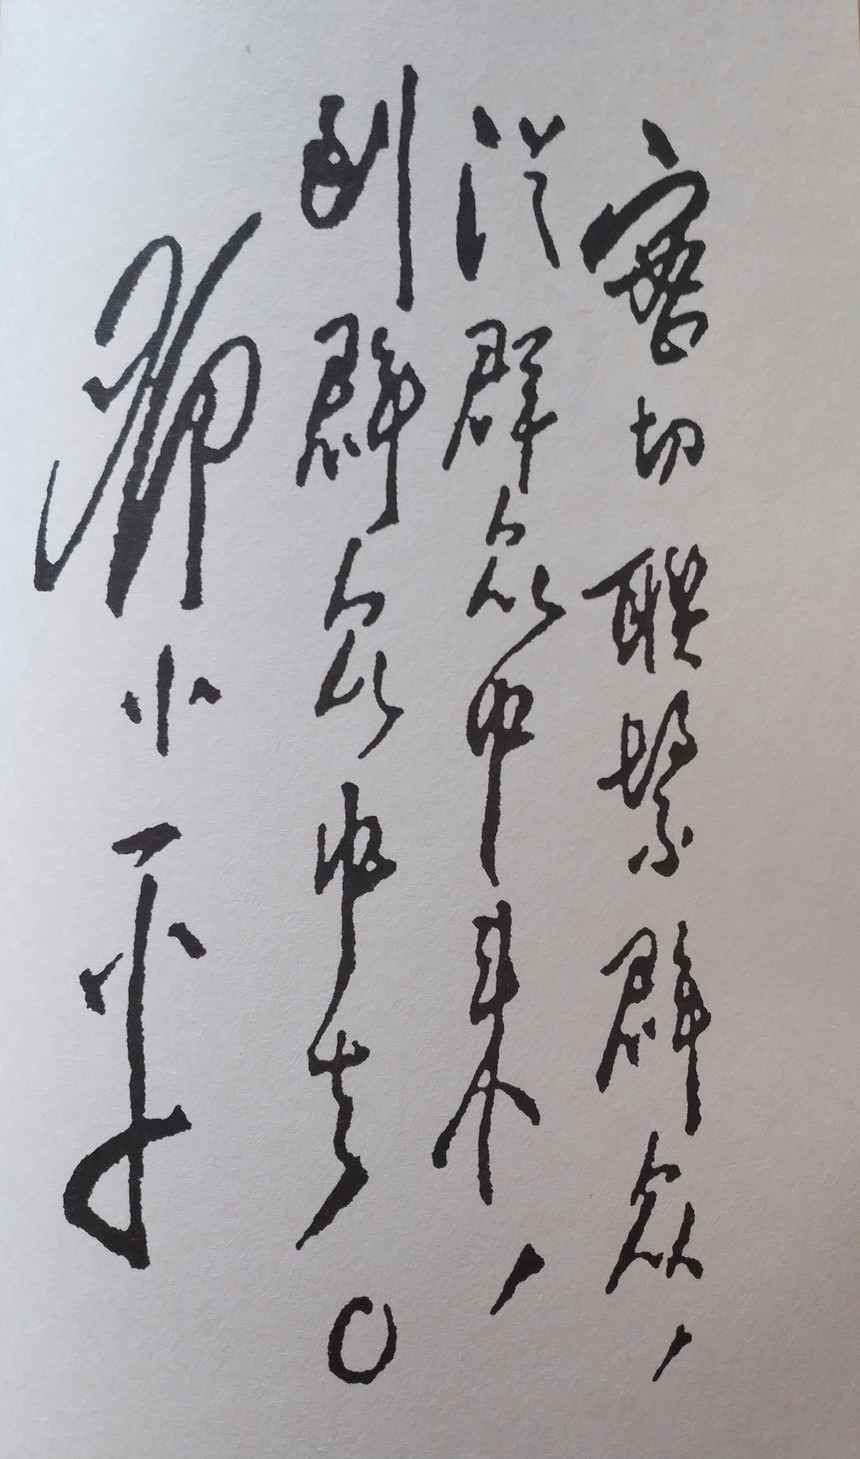 密切联繫群众，
從群众中来，
到群众中去。
邓小平